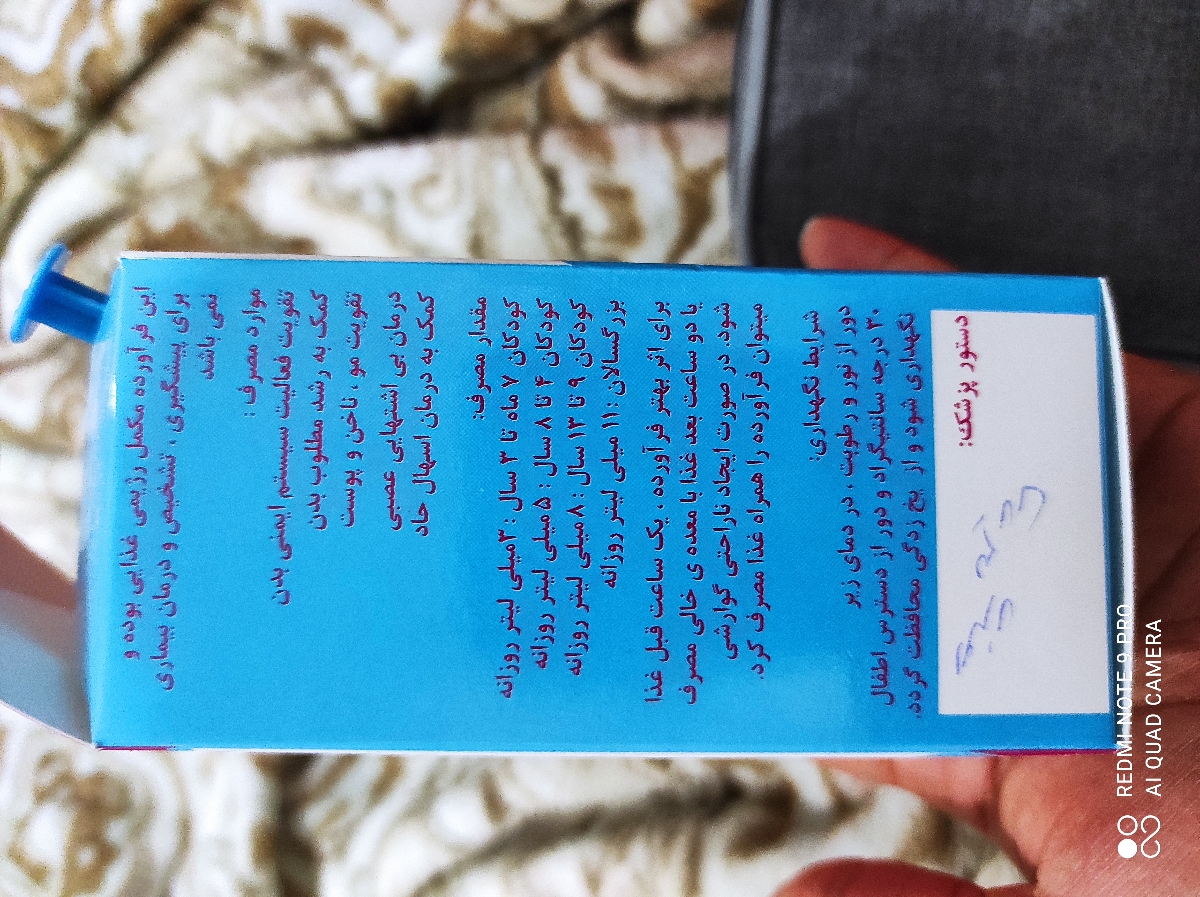 این فرآورده مکمل رژیمی غذایی بوده و
برای پیشگیری، تشخیص و درمان بیماری
نمی باشد
موارد مصرف :
تقویت فعالیت سیستم ایمنی بدن
کمک به رشد مطلوب بدن
تقویت مو ، ناخن و پوست
درمان بی اشتهایی عصبی
کمک به درمان اسهال حاد
مقدار مصرف:
کودکان ۷ ماه تا ۳ سال : ۳میلی لیتر روزانه
کودکان ۴ تا ۸ سال : ۵میلی لیتر روزانه
کودکان ۹ تا ۱۳ سال : ۸میلی لیتر روزانه
بزرگسالان : ۱۱ میلی لیتر روزانه
برای اثر بهتر فرآورده ، یک ساعت قبل غذا
یا دو ساعت بعد غذا با معده ی خالی مصرف
شود. در صورت ایجاد ناراحتی گوارشی
میتوان فرآورده را همراه غذا مصرف کرد.
شرایط نگهداری:
دور از نور و رطوبت ، در دمای زیر
۳۰ درجه سانتیگراد و دور از دسترس اطفال
نگهداری شود و از یخ زدگی محافظت گردد.
دستور پزشک:
REDMI NOTE 9 PRO
AI QUAD CAMERA